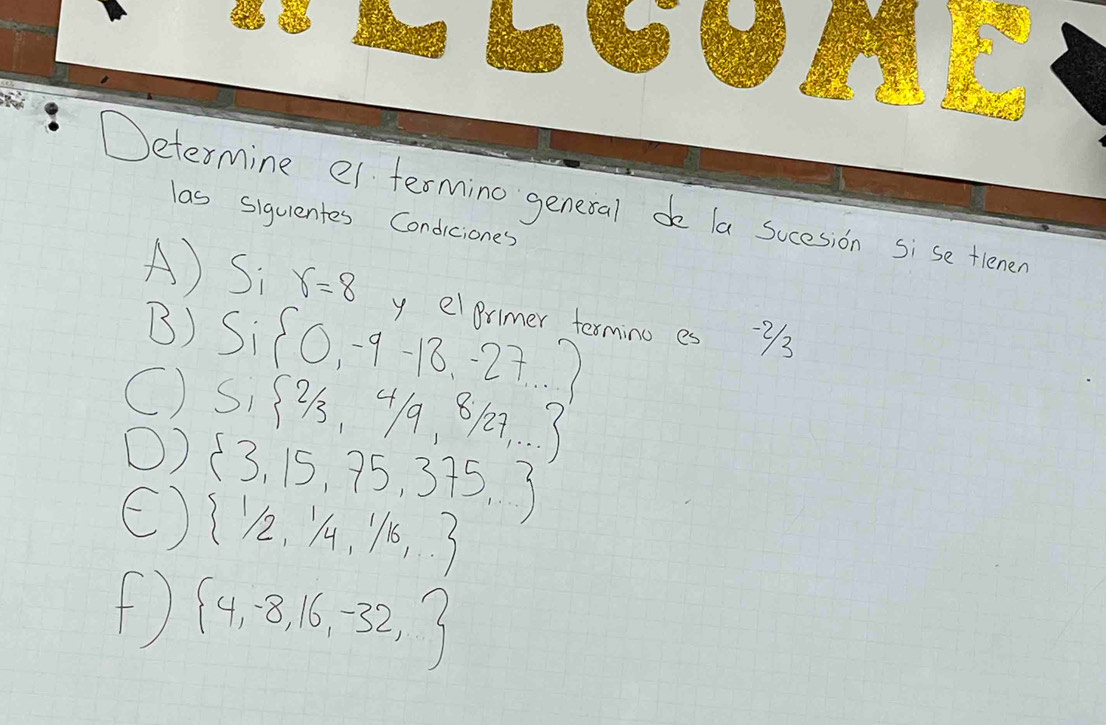 WELCOME
Determine el termino general de la Sucesión si se tienen
las siguientes Condiciones
A) Si r=8 y el primer termino es -2/3
B) Si {0, -9 -18, -27...}
C) Si {2/3, 4/9, 8/27,...}
D) {3, 15, 75, 375,...}
E) {1/2, 1/4, 1/16,...}
f) {4, -8, 16, -32,...}